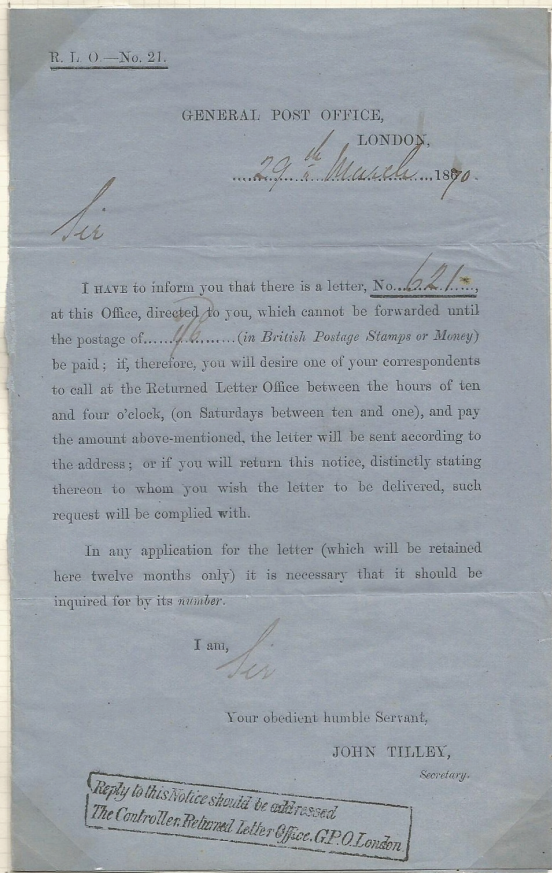 R. L. O.—No. 21.
GENERAL POST OFFICE,
LONDON,
29th March 1870.
Sir
I HAVE to inform you that there is a letter, No. 621,
at this Office, directed to you, which cannot be forwarded until
the postage of ............ (in British Postage Stamps or Money)
be paid; if, therefore, you will desire one of your correspondents
to call at the Returned Letter Office between the hours of ten
and four o'clock, (on Saturdays between ten and one), and pay
the amount above-mentioned, the letter will be sent according to
the address; or if you will return this notice, distinctly stating
thereon to whom you wish the letter to be delivered, such
request will be complied with.
In any application for the letter (which will be retained
here twelve months only) it is necessary that it should be
inquired for by its number.
I am,
Sir
Your obedient humble Servant,
JOHN TILLEY,
Secretary.
Reply to this Notice should be addressed
The Controller. Returned Letter Office. G.P.O. London